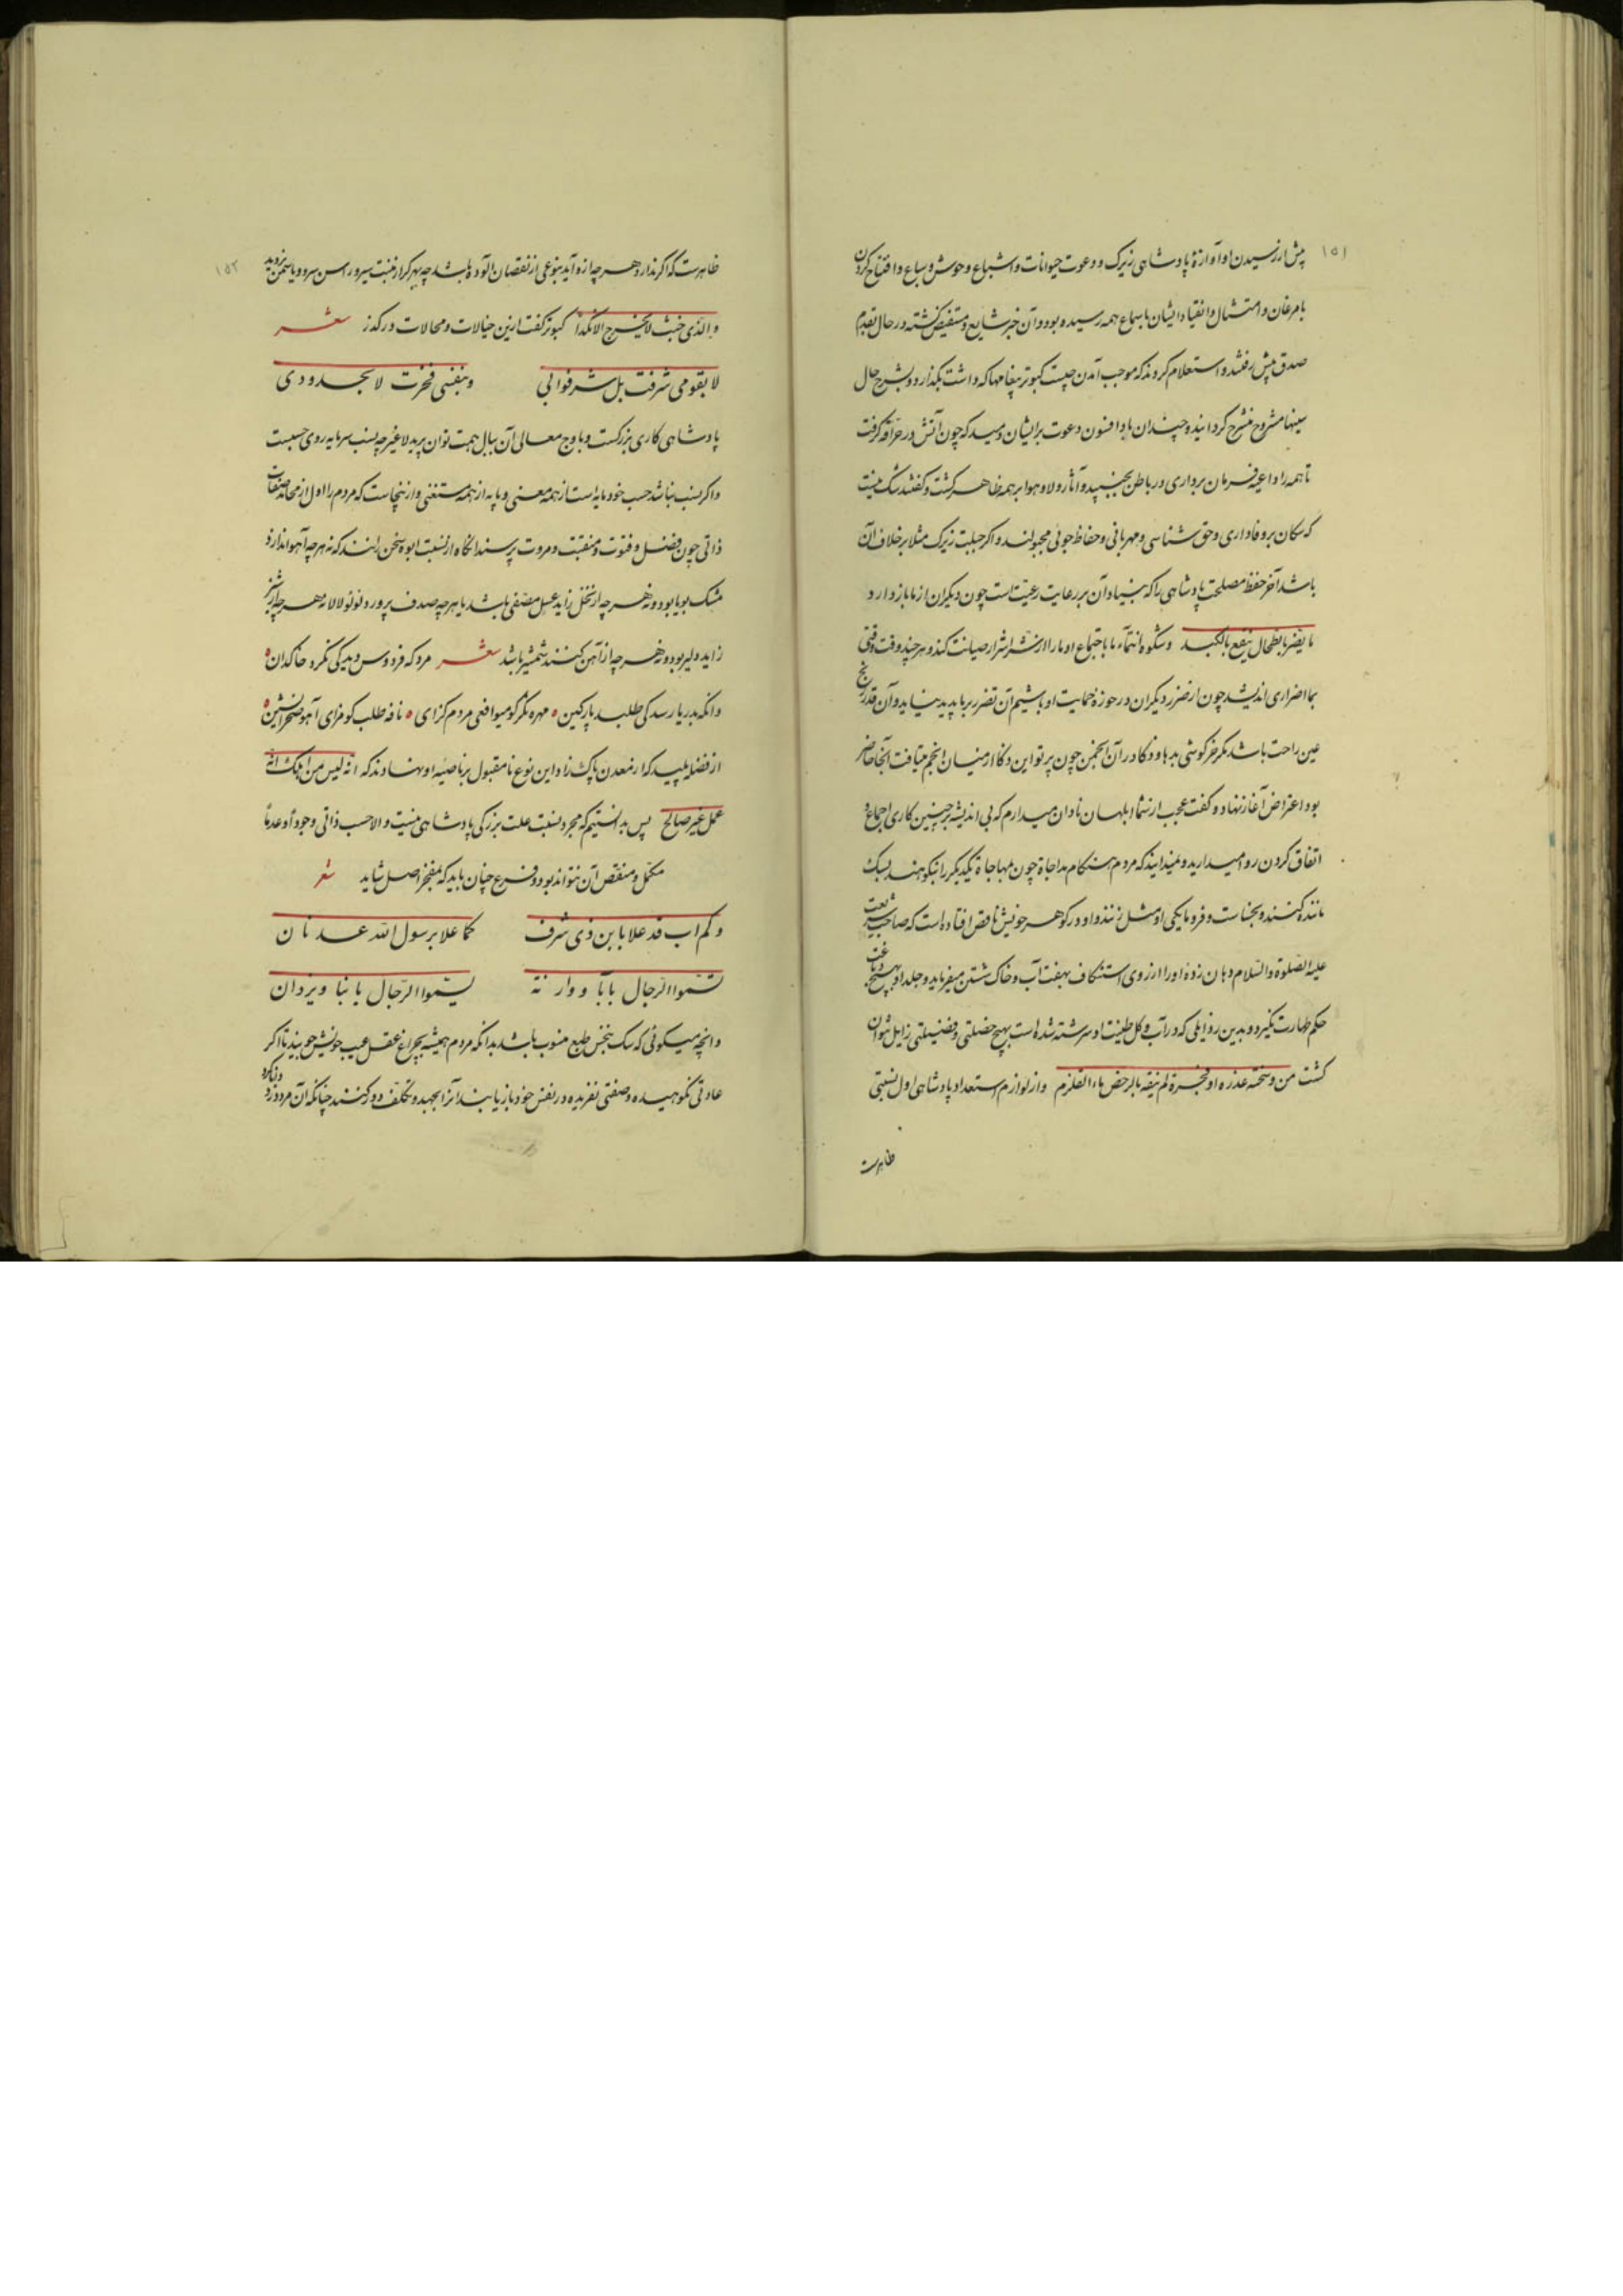 ۱۵۱
پیش از رسیدن او آوازهٔ پادشاهی زیرک و دعوت حیوانات و اشباع وحوش و سباع و افتتاح کردن
بامرغان و امتثال و انقیاد ایشان باسماع همه رسیده بود و آن خبر شایع و مستفیض گشته در حال بقدم
صدق پیش رفتند و استعلام کردند که موجب آمدن چیست کبوتر پیغامها که داشت بگذارد و بشرح حال
سینها مشروح منشرح گردانید و چندان باد افسون دعوت بر ایشان دمید که چون آتش در حراقه گرفت
تا همه را داعیه فرمان برداری در باطن بجنبید و آثار ولا و هوا بر همه ظاهر گشت و گفتند شک نیست
که سکان بر وفاداری و حق شناسی و مهربانی و حفاظ جوئی مجبولند و اگر جبلت زیرک مثلا بر خلاف آن
باشد آخر حفظ مصلحت پادشاهی را که بنیاد آن بر رعایت رعیت است چون دیگران از ما باز دارد
ما یضر بالطحال ینفع بالکبد و شکوه انتماء ما باجتماع او ما را از شر اشرار صیانت کند و هر چند وقت وقتی
بما اضراری اندیشد چون از ضرر دیگران در حوزهٔ حمایت او باشیم آن تضرر بر ما پدید نیاید و آن قدر رنج
عین راحت باشد مگر خرگوشی بدها و ذکا در آن انجمن چون پرتو ابن ذکا از میان انجم میتافت آنجا حاضر
بود اعتراض آغاز نهاد و گفت عجب از شما ابلهان نادان میدارم که بی اندیشه بر چنین کاری اجماع و
اتفاق کردن روا میدارید و نمیدانید که مردم هنگام مداجاة چون مهاجاة یکدیگر را نیکوهند بسک
مانند کنند و بخساست و فرومایگی او مثل زنند و او در گوهر خویش ناقص افتاده است که صاحب شریعت
علیه الصلوة والسلام دهان زدهٔ او را از روی استنکاف بهفت آب و خاک شستن میفرماید و جلد او بهیچ دباغت
حکم طهارت نگیرد و بدین رذایلی که در آب و گل طینت او سرشته شده است بهیچ خصلتی و فضیلتی زایل نتوان
گشت من وسخته عذره او فجرة لم ینقه بالرحض ماء القلزم و از لوازم استعداد پادشاهی اول نسبتی
ظاهرست
۱۵۲
ظاهرست که اگر ندارد هر چه ازو آید بنوعی از نقصان آلوده باشد چه هرگز از منبت سیر و راسن سرو و یاسمن نروید
والذی خبث لا یخرج الا نکدا کبوتر گفت ازین خیالات و محالات در گذر شعر
لا بقومی شرفت بل شرفوا بی و بنفسی فخرت لا بجدودی
پادشاهی کاری بزرگست و باوج معالی آن ببال همت توان پرید لا غیر چه نسب سرمایه روی حسبست
و اگر نسب نباشد حسب خود مایه است از همه معنی و پایه از همه مستغنی و ازینجاست که مردم را اول از محامد صفات
ذاتی چون فضل و فتوت و منقبت و مروت پرسند انگاه از نسبت ابوه سخن رانند که نه هر چه آهو اندازد
مشک بویا بود و نه هر چه از نحل زاید عسل مصفی باشد یا هر چه صدف پرورد لؤلؤ لالا نه هر چه از شیر
زاید دلیر بود و نه هر چه از آهن کنند شمشیر باشد شعر مرد که فردوس دید کی نگرد خاکدان
وانکه بدریا رسد کی طلبد پارگین مهره نگر گو میوافعی مردم گزای نافه طلب گو مزای آهو صحرانشین
از فضل پلید که از معدن پاک زاد این نوع نامقبول بر ناصیه او نهادند که انه لیس من اهلک انه
عمل غیر صالح پس بدانستیم که مجرد نسبت علت بزرگی پادشاهی نیست و الا حسب ذاتی وجودا و عدما
مکمل و منقص آن نتواند بود و فرع چنان باید که مفخر اصل شاید شعر
وکم اب قد علا بابن ذی شرف کما علا برسول الله عدنان
تسمو الرجال بابآء و وارنة یسموا الرجال بابنا و یزدان
وانچه میگوئی که سک بنجس طبع منسوب باشد بدانکه مردم همیشه بچراغ عقل عیب خویش جویند تا اگر
عادتی نکوهیده و صفتی نفریده در نفس خود باز یابند آنرا بجهد و تکلف دور کنند چنانکه آن مرد دزد کرد